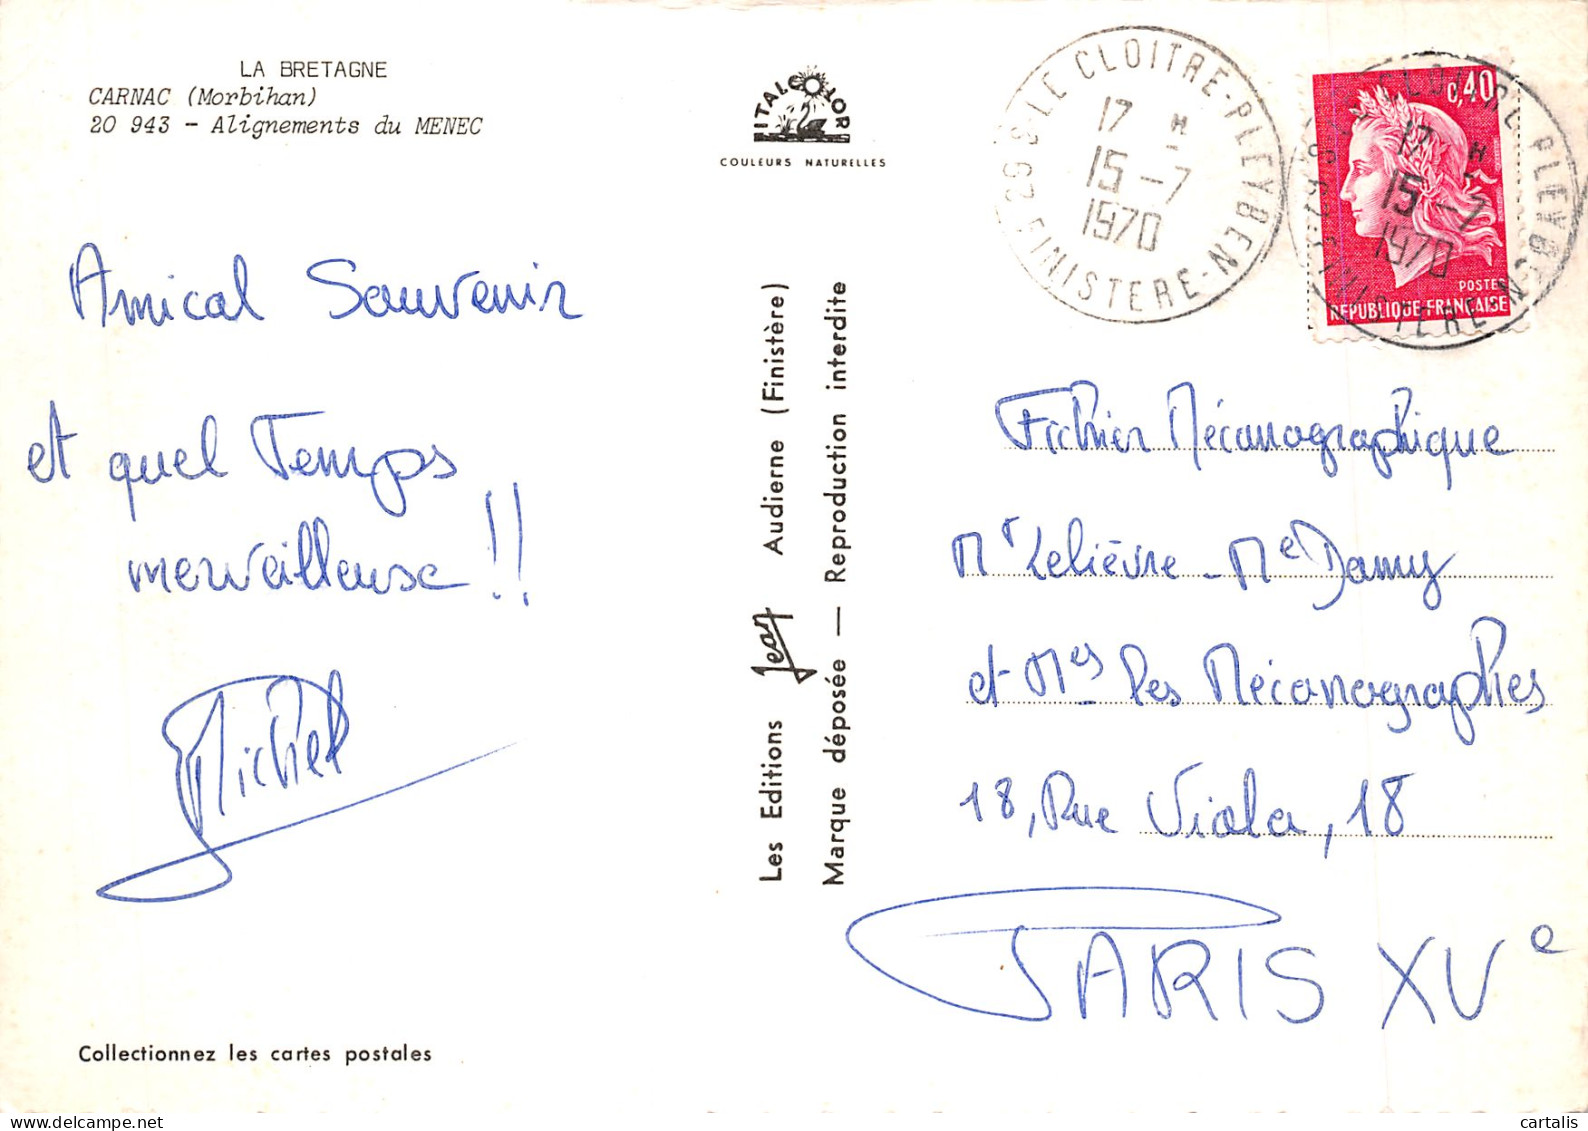 LA BRETAGNE
CARNAC (Morbihan)
20 943 - Alignements du MENEC
ITALCOLOR
COULEURS NATURELLES
29 S LE CLOITRE-PLEYBEN
17 H
15-7
1970
FINISTERE-N
0,40
29 S LE CLOITRE-PLEYBEN
17 H
15-7
1970
FINISTERE-N
POSTES
REPUBLIQUE FRANÇAISE
Amical Souvenir
et quel Temps
merveilleuse !!
Michel
Les Editions Jean Audierne (Finistère)
Marque déposée — Reproduction interdite
Fichier Mécanographique
Mr Lelièvre - Me Damy
et Mes les Mécanographes
18, Rue Viala, 18
PARIS XVe
Collectionnez les cartes postales
cartalis